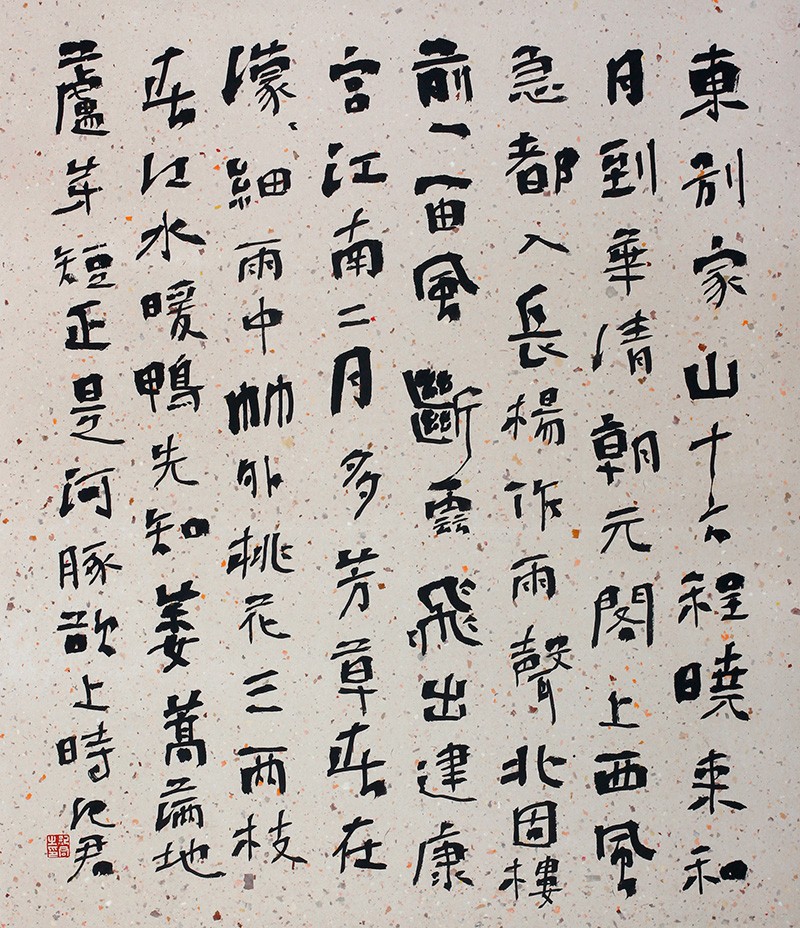 東別家山十六程曉來和
月到華清朝元閣上西風
急都入長楊作雨聲北固樓
前一笛風斷雲飛出建康
宫江南二月多芳草春在
濛〻細雨中竹外桃花三兩枝
春江水暖鴨先知蔞蒿滿地
蘆芽短正是河豚欲上時